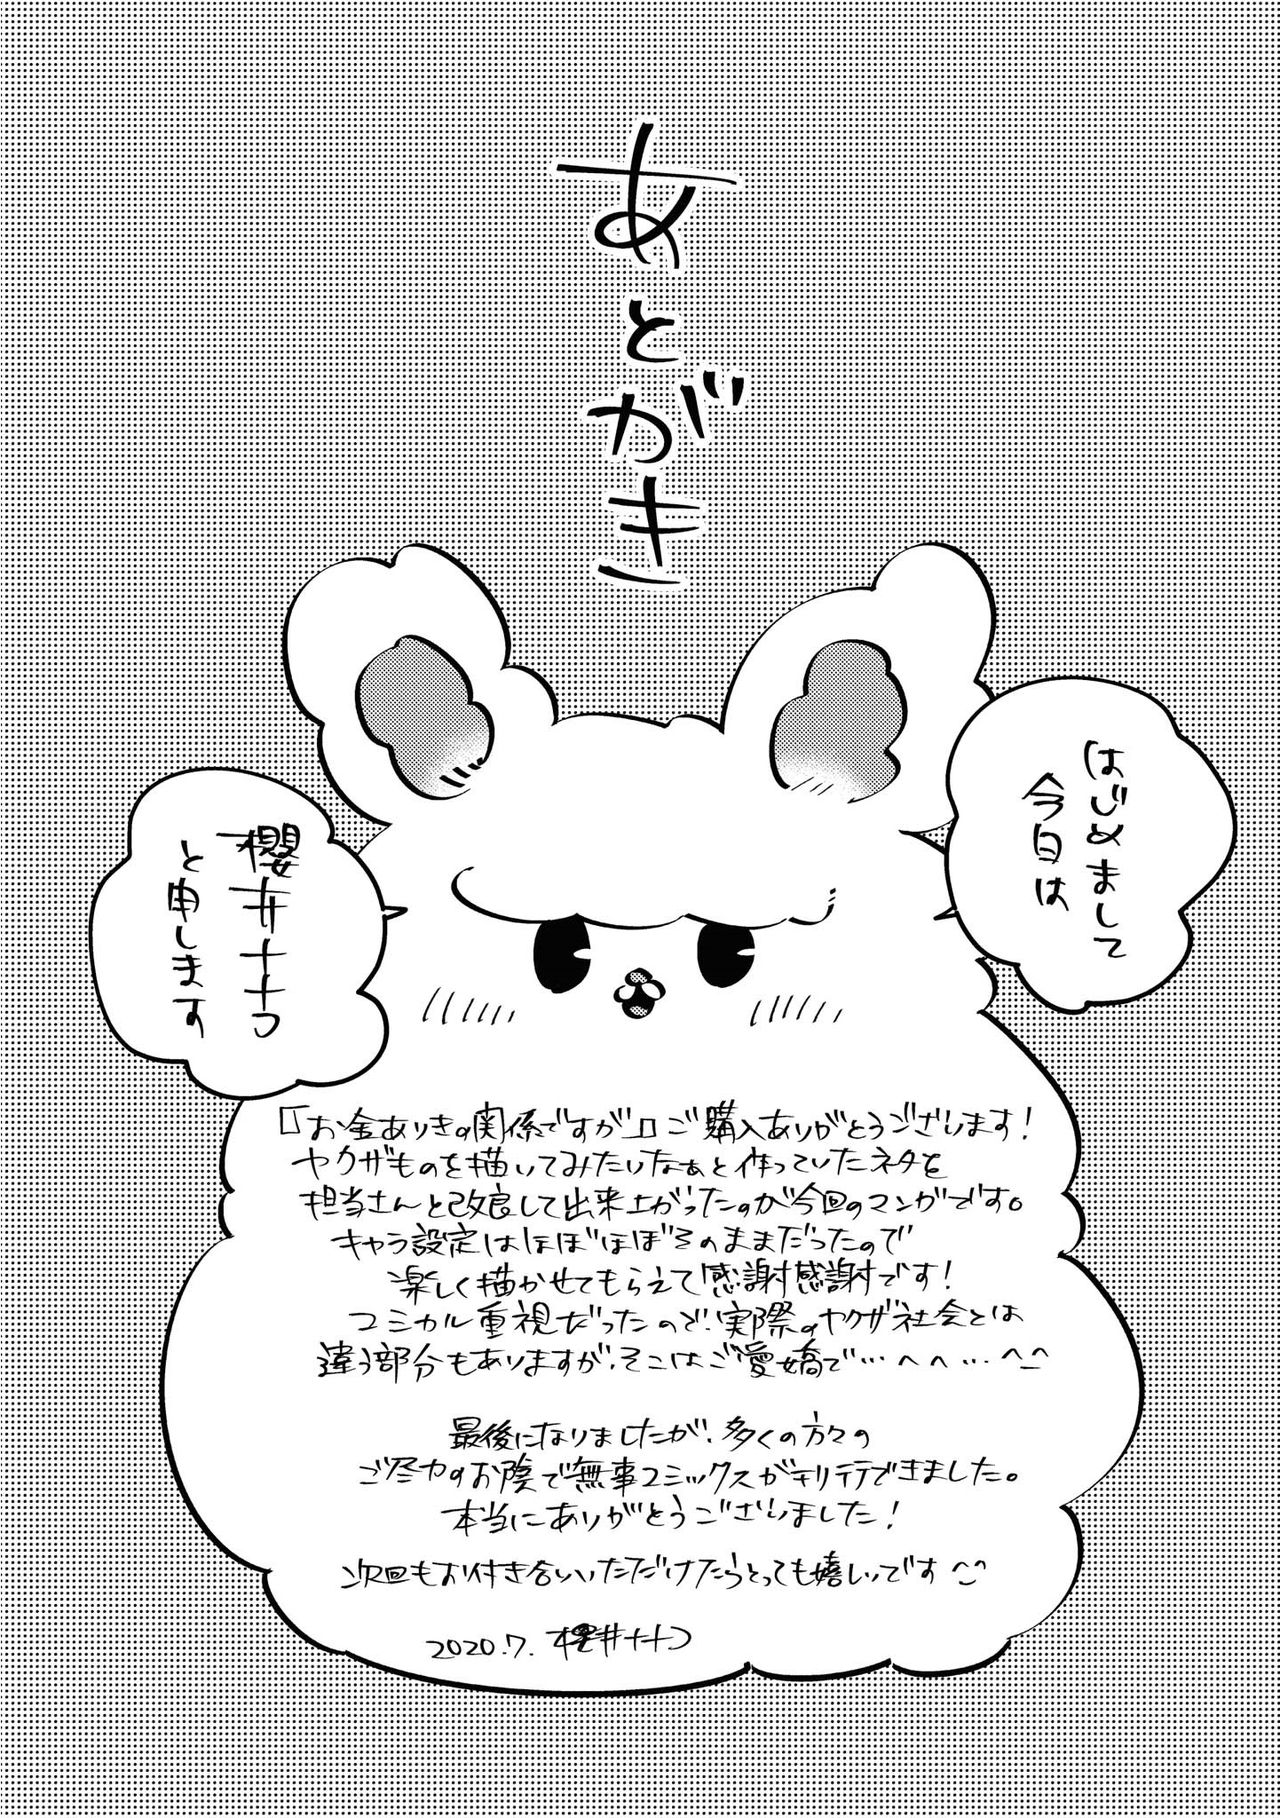 あとがき
はじめまして
今日は
櫻井ナナコ
と申します
『お金ありきの関係ですが』ご購入ありがとうございます!
ヤクザものを描いてみたいなぁと作っていたネタを
担当さんと改良して出来上がったのが今回のマンガです。
キャラ設定はほぼほぼそのままだったので
楽しく描かせてもらえて感謝感謝です!
コミカル重視だったので、実際のヤクザ社会とは
違う部分もありますが、そこはご愛嬌で…へへ…^^
最後になりましたが、多くの方々の
ご尽力のお陰で無事コミックスがキリテイできました。
本当にありがとうございました!
次回もお付き合いいただけたらとっても嬉しいです
2020.7. 櫻井ナナコ